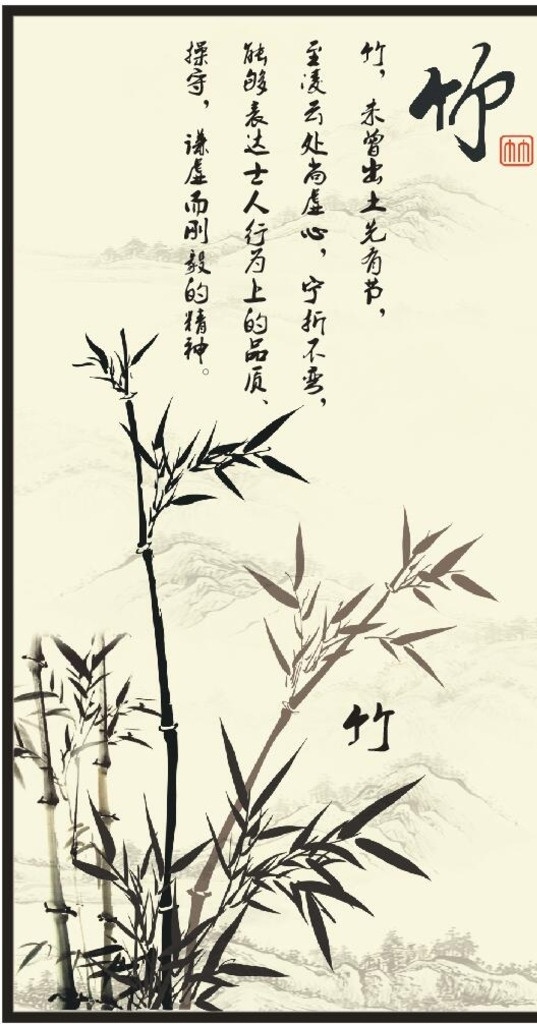 竹
竹，未曾出土先有节，
至凌云处尚虚心，宁折不弯，
能够表达士人行为上的品质、
操守，谦虚而刚毅的精神。
竹